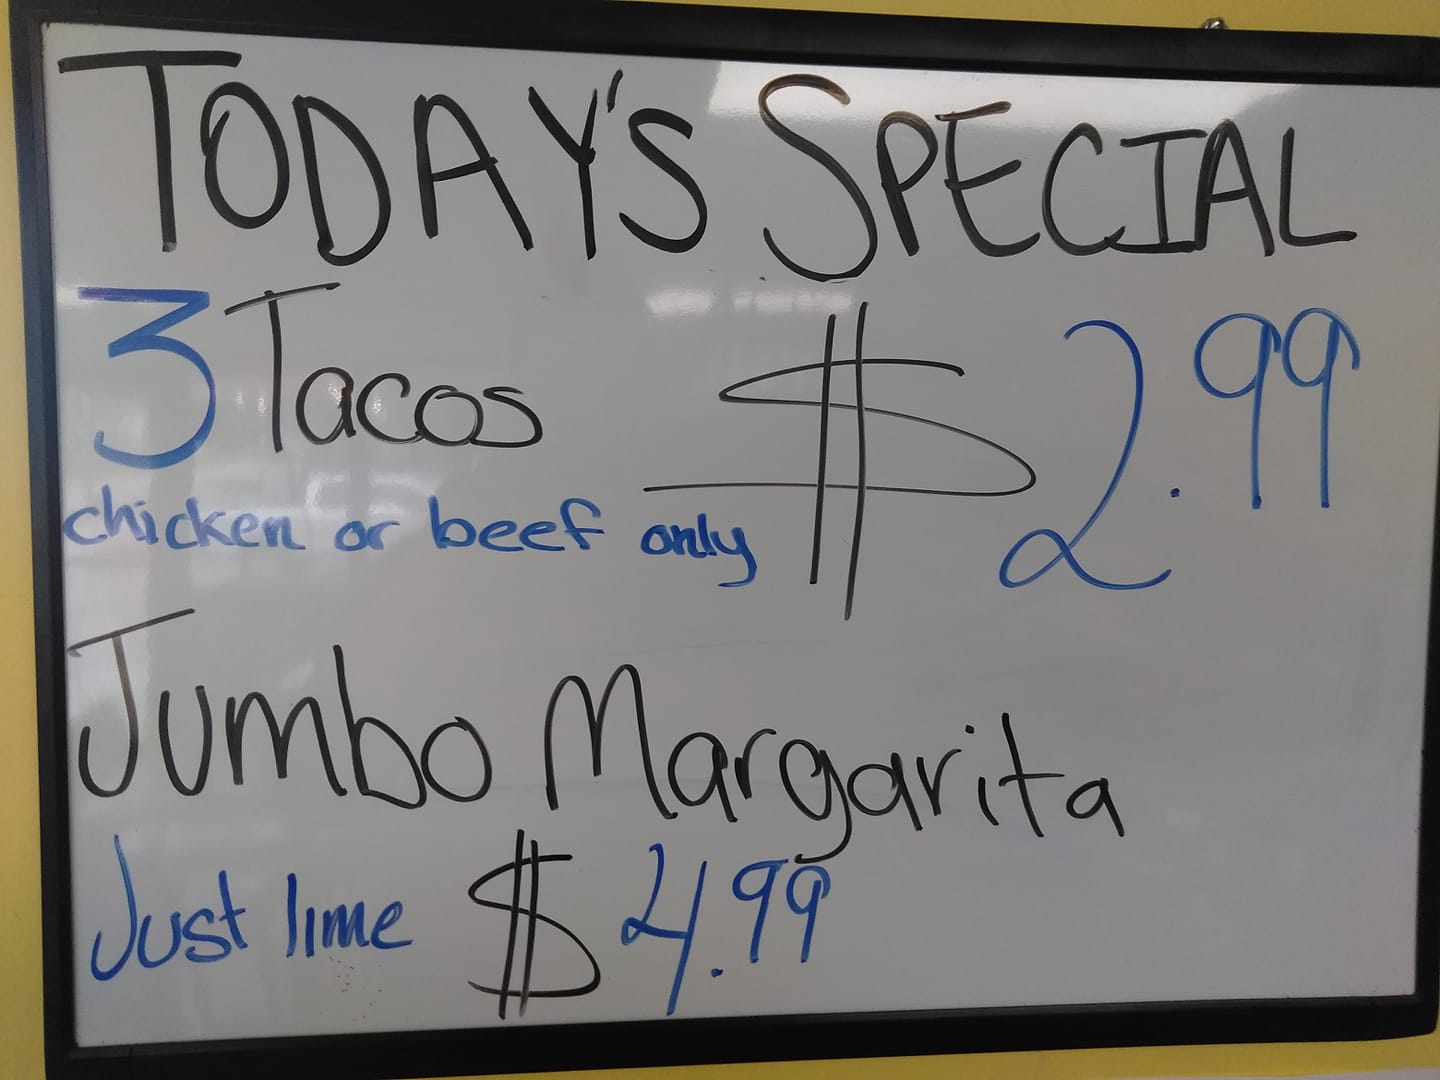 TODAY'S SPECIAL
3 Tacos $2.99
chicken or beef only
Jumbo Margarita
Just lime $4.99